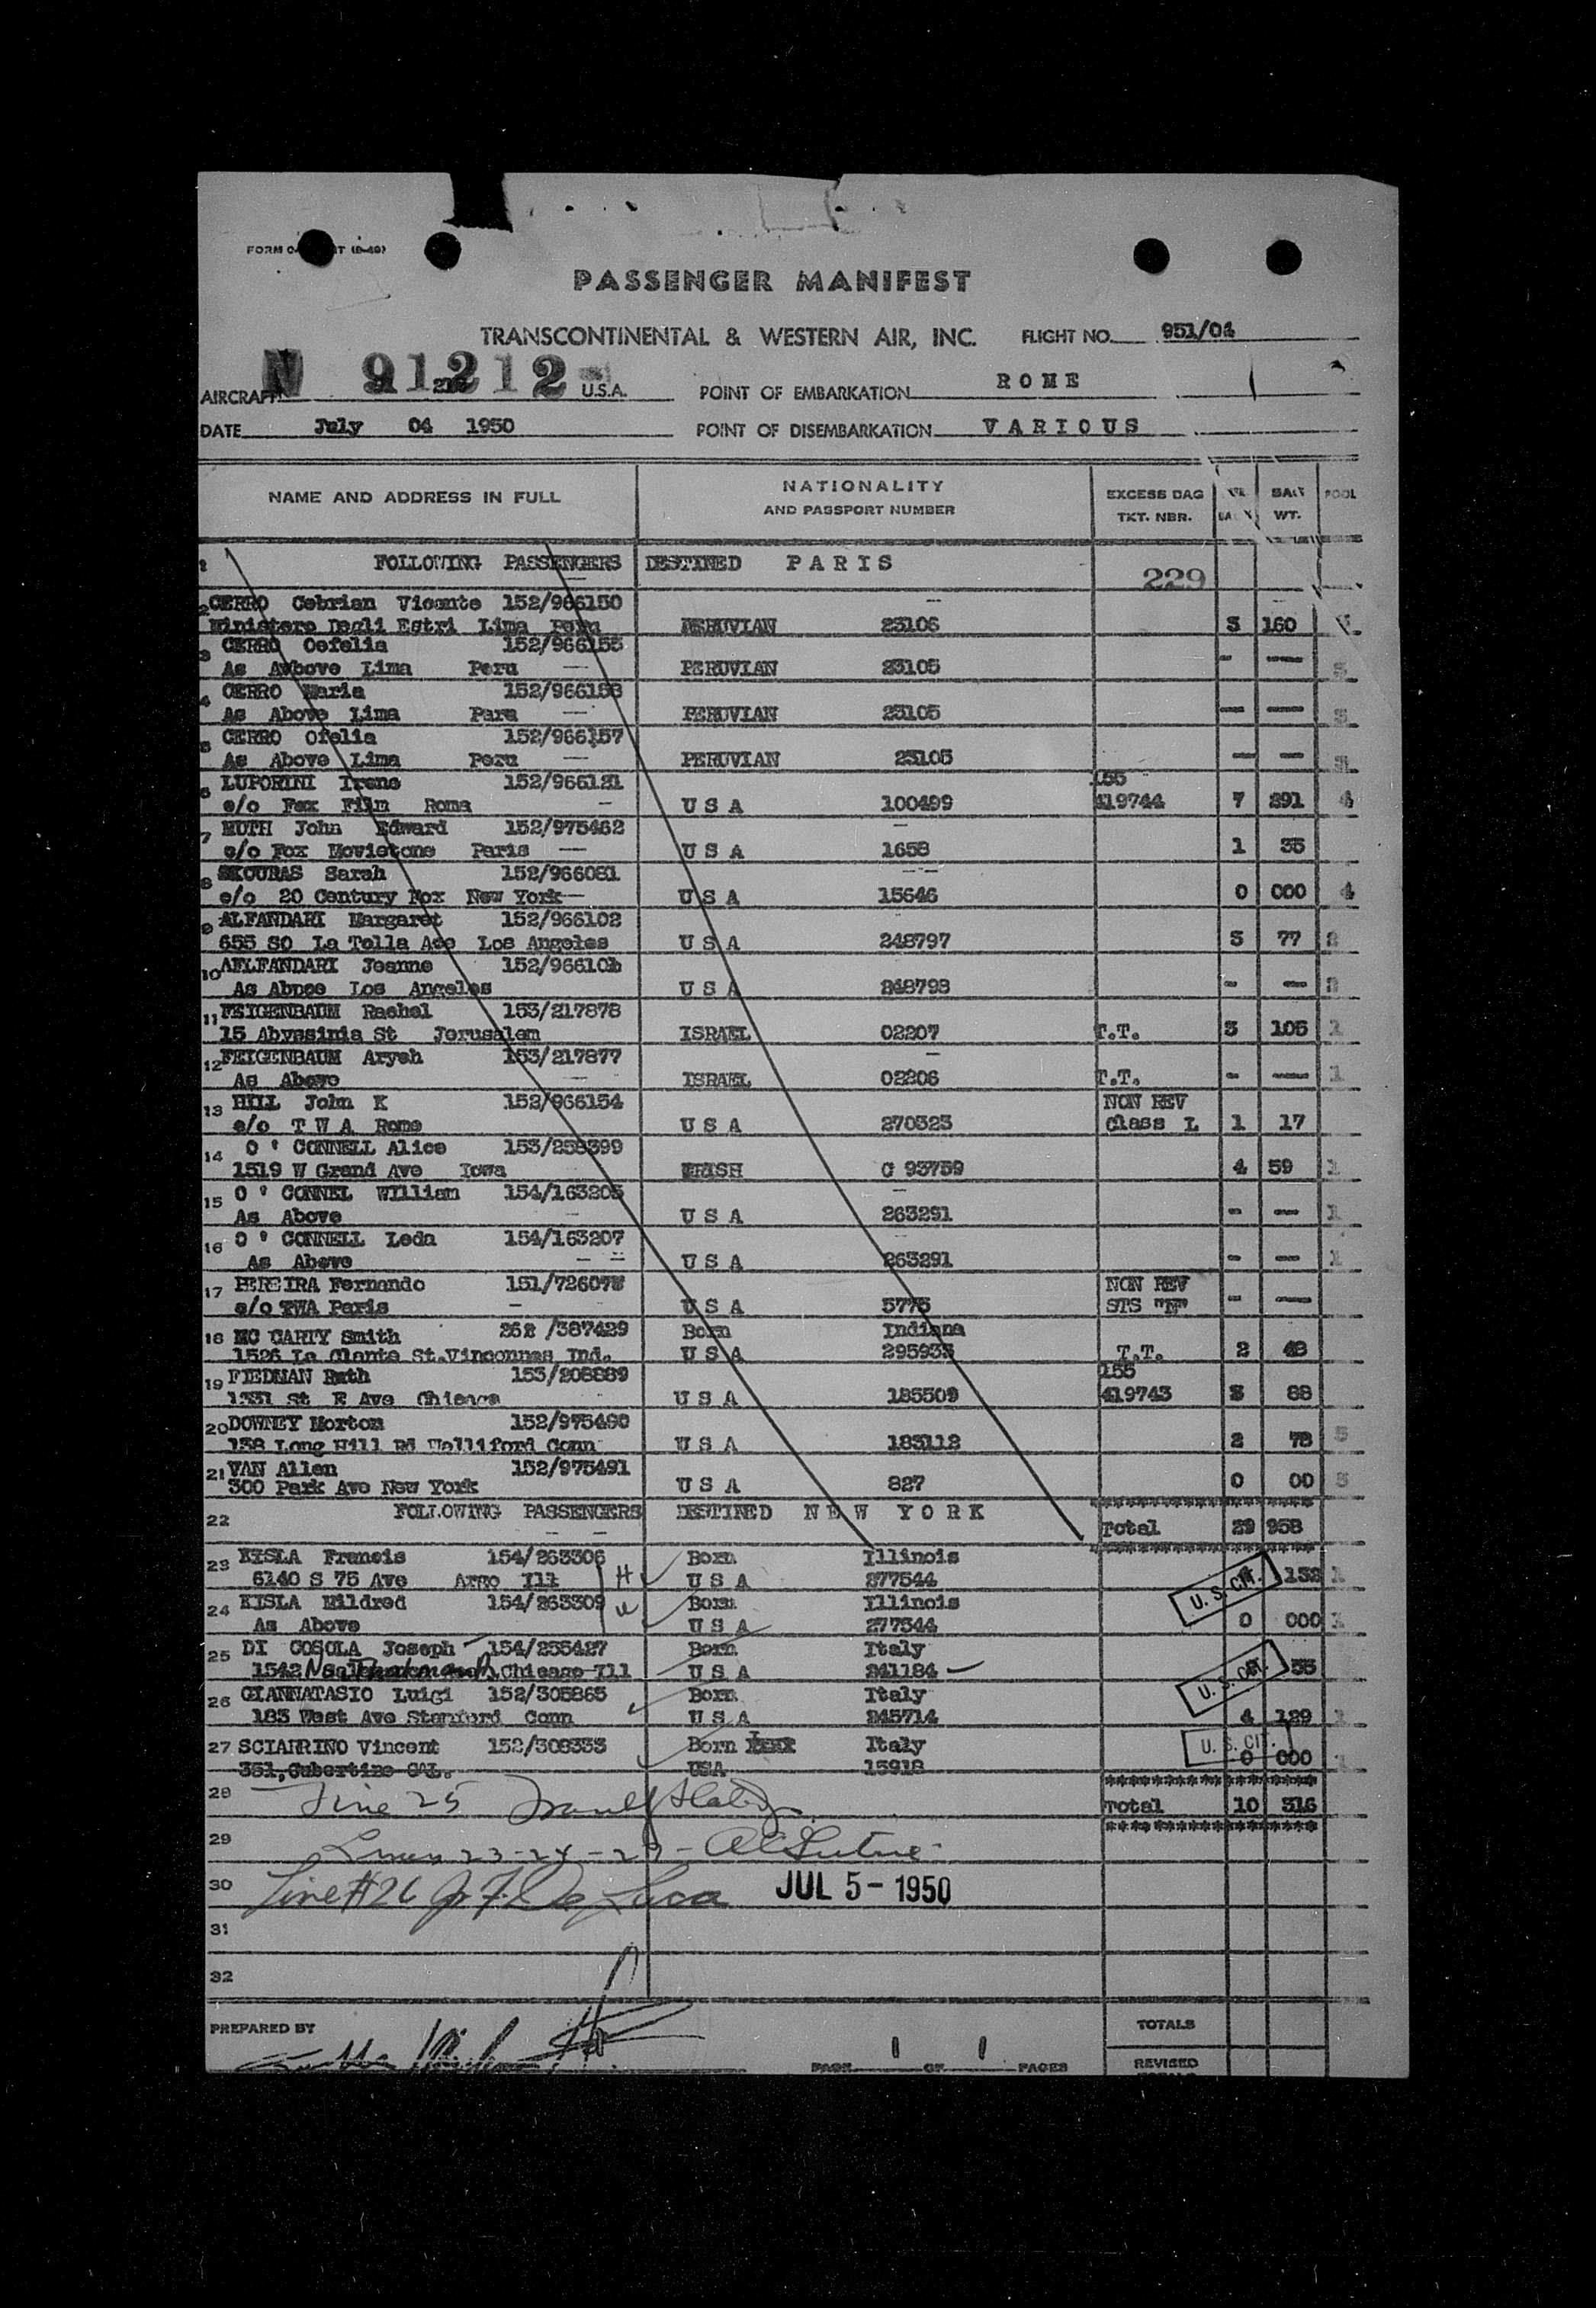 PASSENGER MANIFEST
TRANSCONTINENTAL & WESTERN AIR, INC. FLIGHT NO. 951/04
AIRCRAFT N 91212 U.S.A. POINT OF EMBARKATION ROME
DATE July 04 1950 POINT OF DISEMBARKATION VARIOUS
NAME AND ADDRESS IN FULL NATIONALITY AND PASSPORT NUMBER EXCESS BAG TKT. NBR. WT. POOL
1 FOLLOWING PASSENGERS DESTINED PARIS 229
2 CERRO Cebrian Vicente 152/966150
Ministero Degli Estri Lima Peru PERUVIAN 23106 3 160
3 CERRO Oefelia 152/966155
As Awbove Lima Peru PERUVIAN 23105 - —
4 CERRO Maria 152/966156
As Above Lima Para PERUVIAN 23105 — —
5 CERRO Ofelia 152/966157
As Above Lima Peru PERUVIAN 23105 — —
6 LUPORINI Irene 152/966121 155
c/o Fox Film Roma USA 100499 419744 7 291 4
7 MUTH John Edward 152/975462
c/o Fox Movietone Paris USA 1658 1 35
8 SKOURAS Sarah 152/966081
c/o 20 Century Fox New York USA 15646 0 000 4
9 ALFANDARI Margaret 152/966102
655 SO La Tolla Ave Los Angeles USA 248797 3 77 2
10 AFLFANDARI Jeanne 152/96610
As Abnoe Los Angeles USA 248798 - —
11 FEIGENBAUM Rachel 153/217878
15 Abyssinia St Jerusalem ISRAEL 02207 T.T. 3 105 1
12 FEIGENBAUM Aryeh 153/217877
As Above ISRAEL 02206 T.T. - — 1
13 HILL John K 152/966154 NON REV
c/o T W A Rome USA 270323 Class L 1 17
14 O ' CONNELL Alice 153/258399
1519 W Grand Ave Iowa IRISH C 93759 4 59 1
15 O ' CONNEL William 154/163205
As Above USA 263291 - — 1
16 O ' CONNELL Leda 154/163207
As Above USA 263291 - — 1
17 PEREIRA Fernando 151/72607
c/o TWA Paris USA 5775 NON REV STS "N" - —
18 MC CARTY Smith 262 /387429 Born Indiana
1526 La Clante St.Vinconnes Ind. USA 295933 T.T. 2 48
19 FIEDMAN Ruth 153/208889 155
1331 St R Ave Chicago USA 185509 419743 3 88
20 DOWNEY Morton 152/975490
158 Long Hill Rd Walliford Conn USA 183112 2 78 5
21 VAN Allen 152/975491
300 Park Ave New York USA 827 0 00 5
22 FOLLOWING PASSENGERS DESTINED NEW YORK Total 29 958
23 KISLA Francis 154/263306 H Born Illinois
6140 S 75 Ave Argo Ill USA 277544 U. S. CIT. 132 1
24 KISLA Mildred 154/263309 W Born Illinois
As Above USA 277544 0 000 1
25 DI COSOLA Joseph 154/255427 Born Italy
1542 N Chicago Ill USA 241184 U. S. CIT. 55
26 GIANNATASIO Luigi 152/305865 Born Italy
183 West Ave Stamford Conn USA 245714 4 129 1
27 SCIARRINO Vincent 152/308333 Born Italy U. S. CIT.
351,Cubertino CAL. USA 15918 0 000 1
28 Line 25 Total 10 316
29 Lines 23-24-27-
30 Line #26 De Luca JUL 5- 1950
31
32
PREPARED BY TOTALS
PAGE 1 OF 1 PAGES REVISED